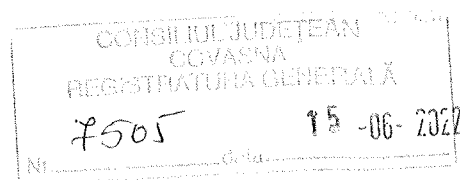 CONSILIUL JUDEȚEAN
COVASNA
REGISTRATURA GENERALĂ
Nr. 7505 data 15 -06- 2022